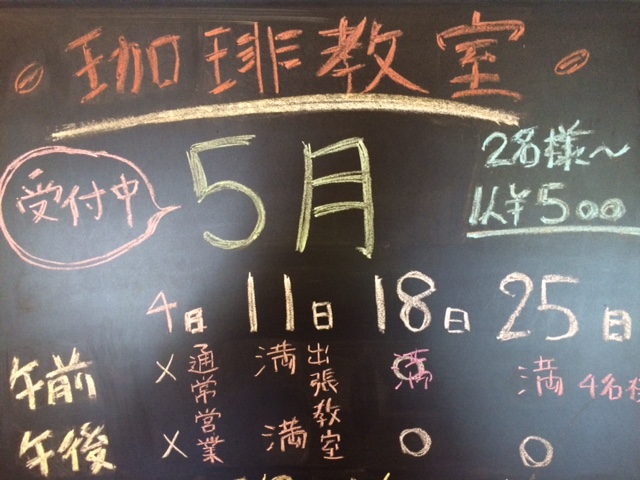 珈琲教室
受付中
5月
2名様～
1人¥500
4日 11日 18日 25日
午前 × 通常営業 満 出張教室 満 満 4名様
午後 × 満 ○ ○